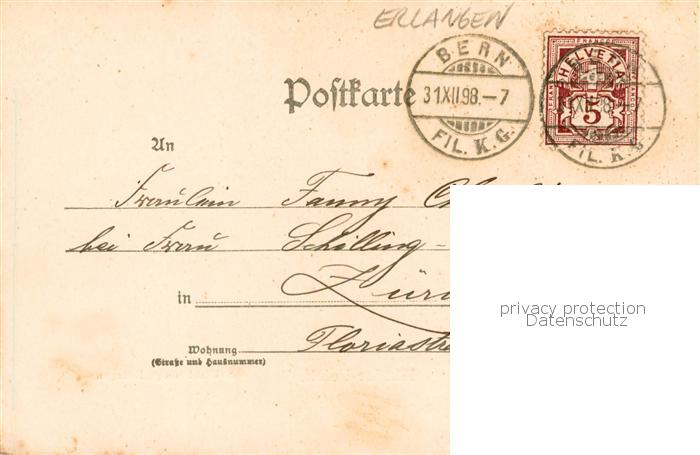 ERLANGEN
BERN
31.XII.98.–7
FIL. K.G.
HELVETIA
FRANCO
5
XII.98.
FIL. K.G.
Postkarte
An
Fräulein Fanny
bei Frau Schilling-
in
Wohnung
(Straße und Hausnummer)
privacy protection
Datenschutz